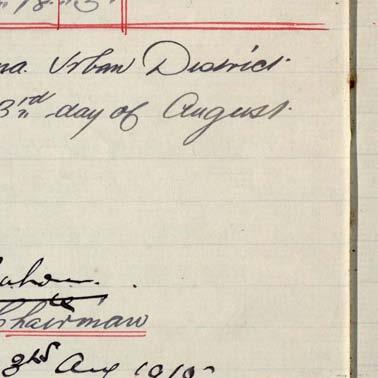 18
na. Urban District.
3rd day of August.
Chairman
3rd Aug 1910